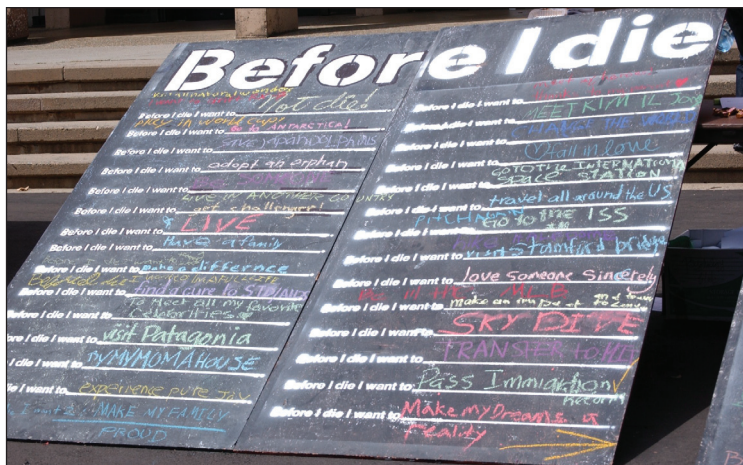 Before I die
Not die!
Before I die I want to
PLAY IN WORLD CUP!
Before I die I want to go to ANTARCTICA!
Before I die I want to SAVE
Before I die I want to adopt an orphan
Before I die I want to
LIVE IN ANOTHER COUNTRY
Before I die I want to get challenger!
Before I die I want to LIVE
Before I die I want to Have a family
Before I die I want to make a differnce
Before I die I want to find a cure to
To Meet all my favorite
Before I die I want to Celebrities
Before I die I want to visit Patagonia
Before I die I want to MY MOM A HOUSE
Before I die I want to experience pure joy
MAKE MY FAMILY
PROUD
Before I die I want to
Before I die I want to MEET KIM IL
Before I die I want to CHANGE
Before I die I want to fall in love
GO TO THE INTERNATIONAL
Before I die I want to SPACE STATION
Before I die I want to travel all around the US
Before I die I want to GO to THE ISS
PITCH
Before I die I want to
Before I die I want to visit Stamford bridge
Before I die I want to love someone sincerely
MLB
Before I die I want to make an impact
Before I die I want to SKY DIVE
Before I die I want to TRANSFER to
Before I die I want to Pass Immigration
Before I die I want to Make my Dreams a
reality